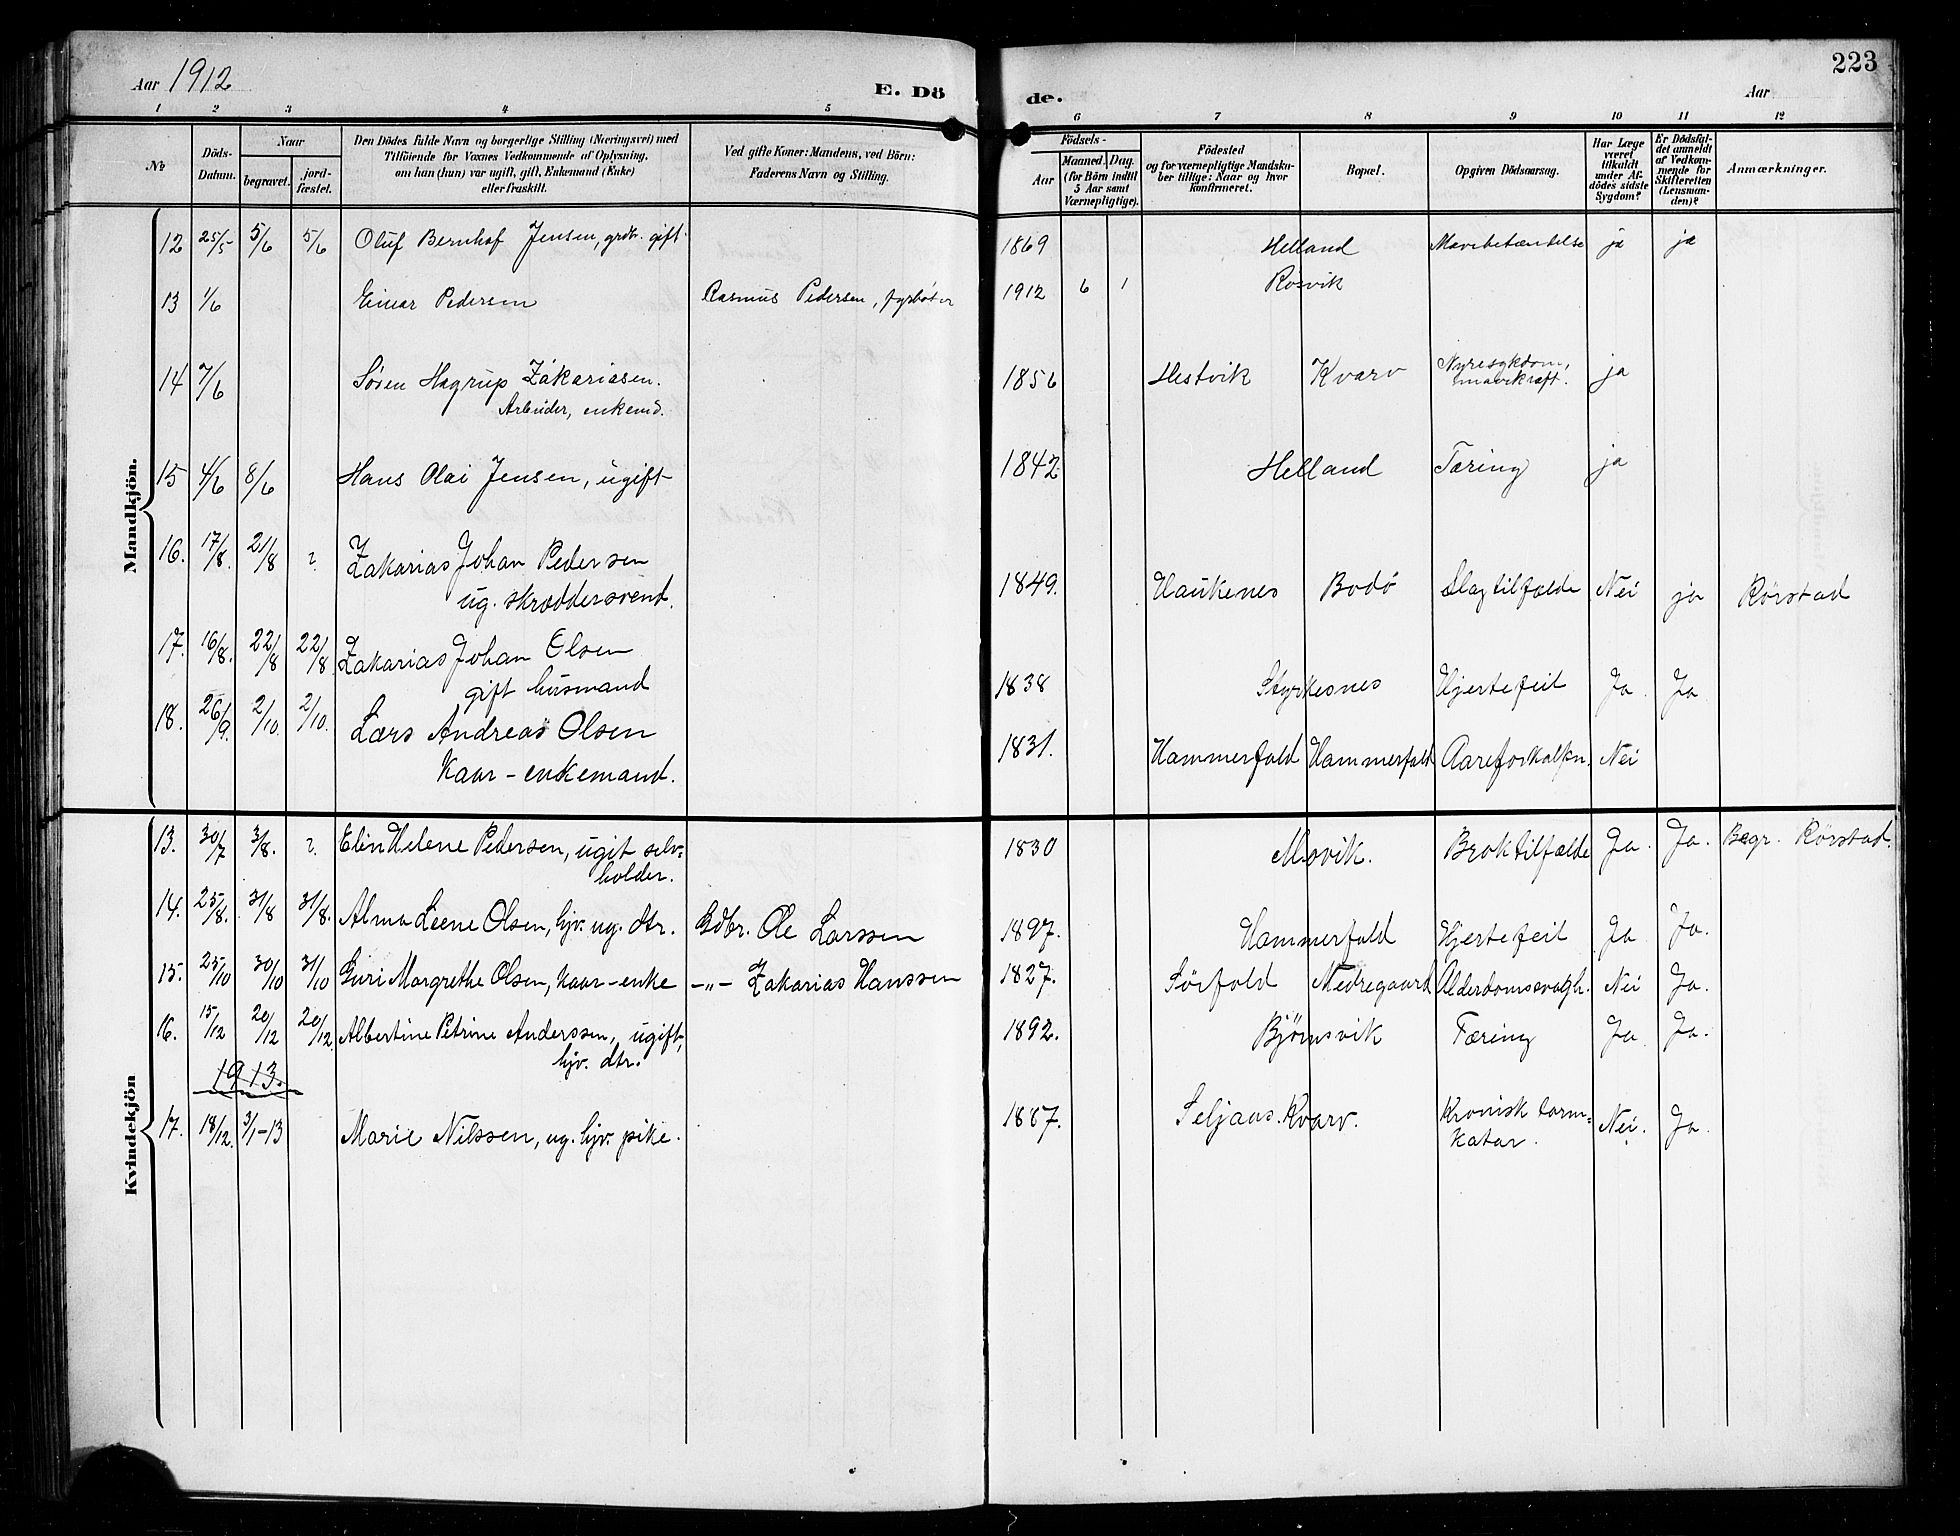 Aar 1912
E. Dö
de.
Aar
223
1 2 3 4 5 6 7 8 9 10 11 12
No
Döds-Datum.
Naar
begravet.
jord-fæstet.
Den Dödes fulde Navn og borgerlige Stilling (Næringsvei) med
Tilföiende for Voxnes Vedkommende af Oplysning,
om han (hun) var ugift, gift, Enkemand (Enke)
eller fraskilt.
Ved gifte Koner: Mandens, ved Börn:
Faderens Navn og Stilling.
Födsels-
Aar
Maaned. Dag.
(for Börn indtil
5 Aar samt
Værnepligtige).
Födested
og for værnepligtige Mandskaber tillige: Naar og hvor
konfirmeret.
Bopæl.
Opgiven Dödsaarsag.
Har Læge
været
tilkaldt
under Afdödes sidste
Sygdom?
Er Dödsfaldet anmeldt
af Vedkommende for
Skifteretten
(Lensmanden)?
Anmærkninger.
Mandkjön.
12 25/5 5/6 5/6 Oluf Bernhof Jensen, grdbr. gift. 1869 Helland Mavebetændelse ja ja
13 1/6 Einar Pedersen Rasmus Pedersen, fyrbøter 1912 6 1 Røsvik
14 7/6 Søren Hagrup Zakariasen. 1856 Hestvik Kvarv Nyresykdom, ja
Arbeider, enkemd. mavekræft.
15 4/6 8/6 Hans Olai Jensen, ugift 1842 Helland Tæring ja
16. 17/8. 21/8 ? Zakarias Johan Pedersen
ug. skræddersvend. 1849. Haukenes Bodö Slagtilfælde Nei ja Rörstad
17. 16/8. 22/8 22/8. Zakarias Johan Olsen
gift husmand 1838 Styrkesnes Hjertefeil Ja Ja
18. 26/9. 2/10 2/10. Lars Andreas Olsen
Kaar-enkemand. 1831. Hammerfald Hammerfald Aareforkalkn. Nei
Kvindekjön
13. 30/7 3/8. ? Elen Helene Pedersen, ugit selv= 1830 Movik. Broktilfælde Ja. Ja. Begr. Rörstad.
holder.
14. 25/8. 31/8 31/8. Alma Leene Olsen, hjv. ug. dtr. Gdbr. Ole Larssen 1897. Hammerfald Hjertefeil Ja Ja.
15. 25/10 30/10 31/10 Guri Margrethe Olsen, kaar-enke -„- Zakarias Hanssen 1827. Sörfold Nedregaard Alderdomssvagh. Nei Ja.
16. 15/12 20/12 20/12. Albertine Petrine Anderssen, ugift, 1892. Bjørnsvik Tæring Ja Ja.
hjv. dtr.
1913.
17. 18/12. 3/1-13 Marie Nilssen, ug. hjv. pike. 1887. Seljaas. Kvarv. Kronisk tarm= Nei. Ja.
katar.